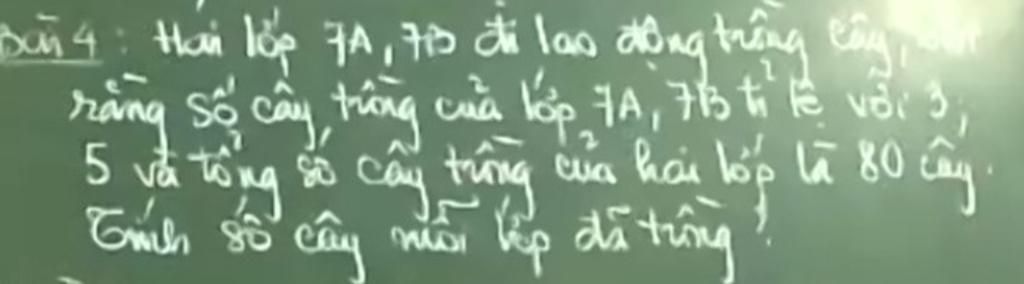 Bài 4: Hai lớp 7A, 7B đi lao động trồng cây,
rằng số cây trồng của lớp 7A, 7B tỉ lệ với 3;
5 và tổng số cây trồng của hai lớp là 80 cây.
Tính số cây mỗi lớp đã trồng?